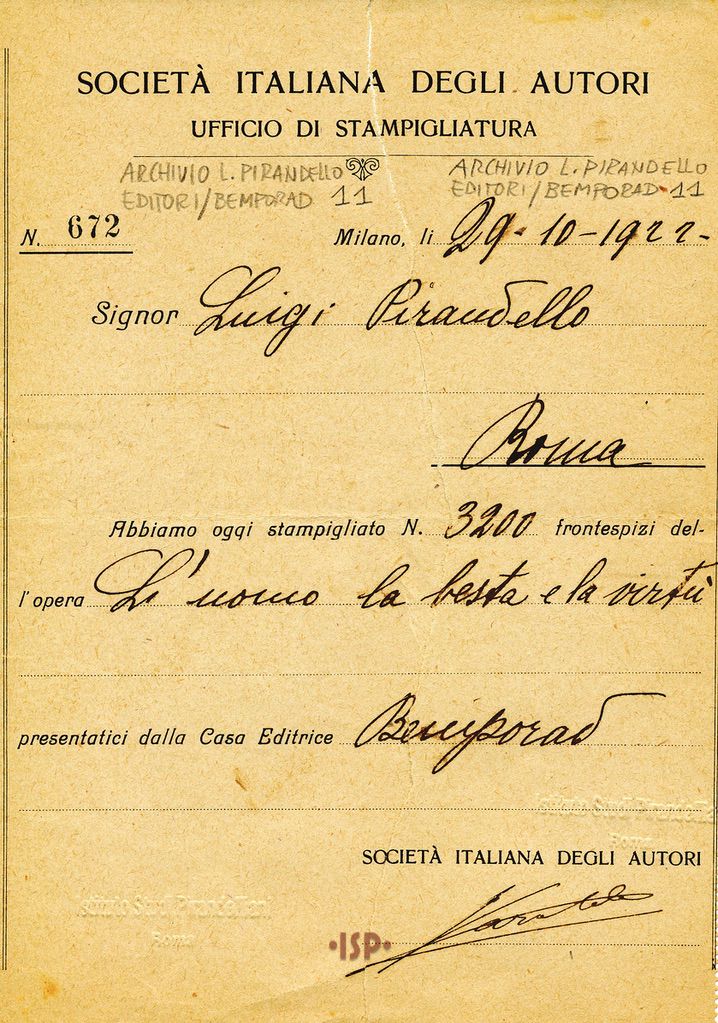 SOCIETÀ ITALIANA DEGLI AUTORI
UFFICIO DI STAMPIGLIATURA
ARCHIVIO L. PIRANDELLO
EDITORI/BEMPORAD 11
ARCHIVIO L. PIRANDELLO
EDITORI/BEMPORAD 11
N. 672
Milano, li 29-10-1922-
Signor Luigi Pirandello
Roma
Abbiamo oggi stampigliato N. 3200 frontespizi del-
l'opera L'uomo la besta e la virtù
presentatici dalla Casa Editrice Bemporad
SOCIETÀ ITALIANA DEGLI AUTORI
•ISP•